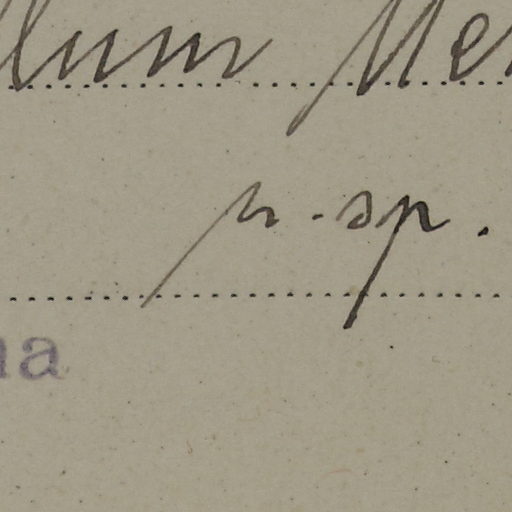 llum Me
n. sp.
na